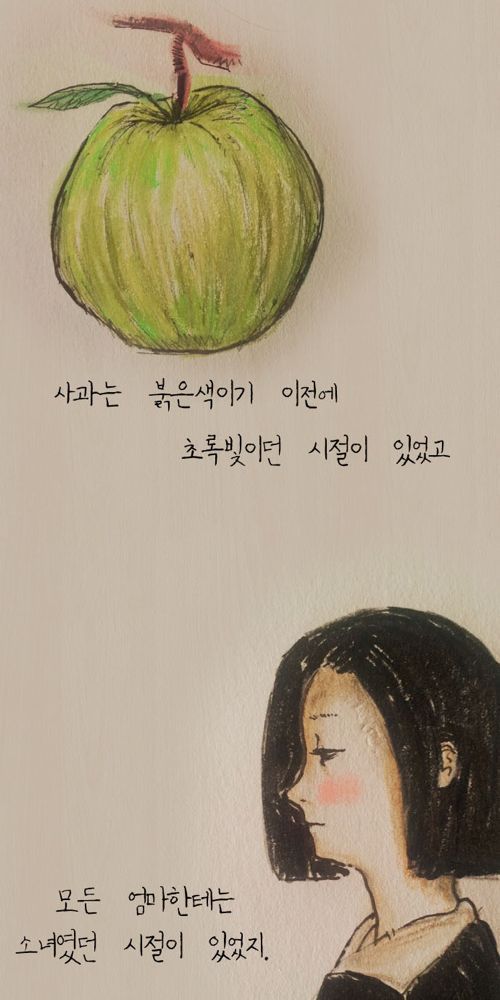 사과는 붉은색이기 이전에
초록빛이던 시절이 있었고
모든 엄마한테는
소녀였던 시절이 있었지.